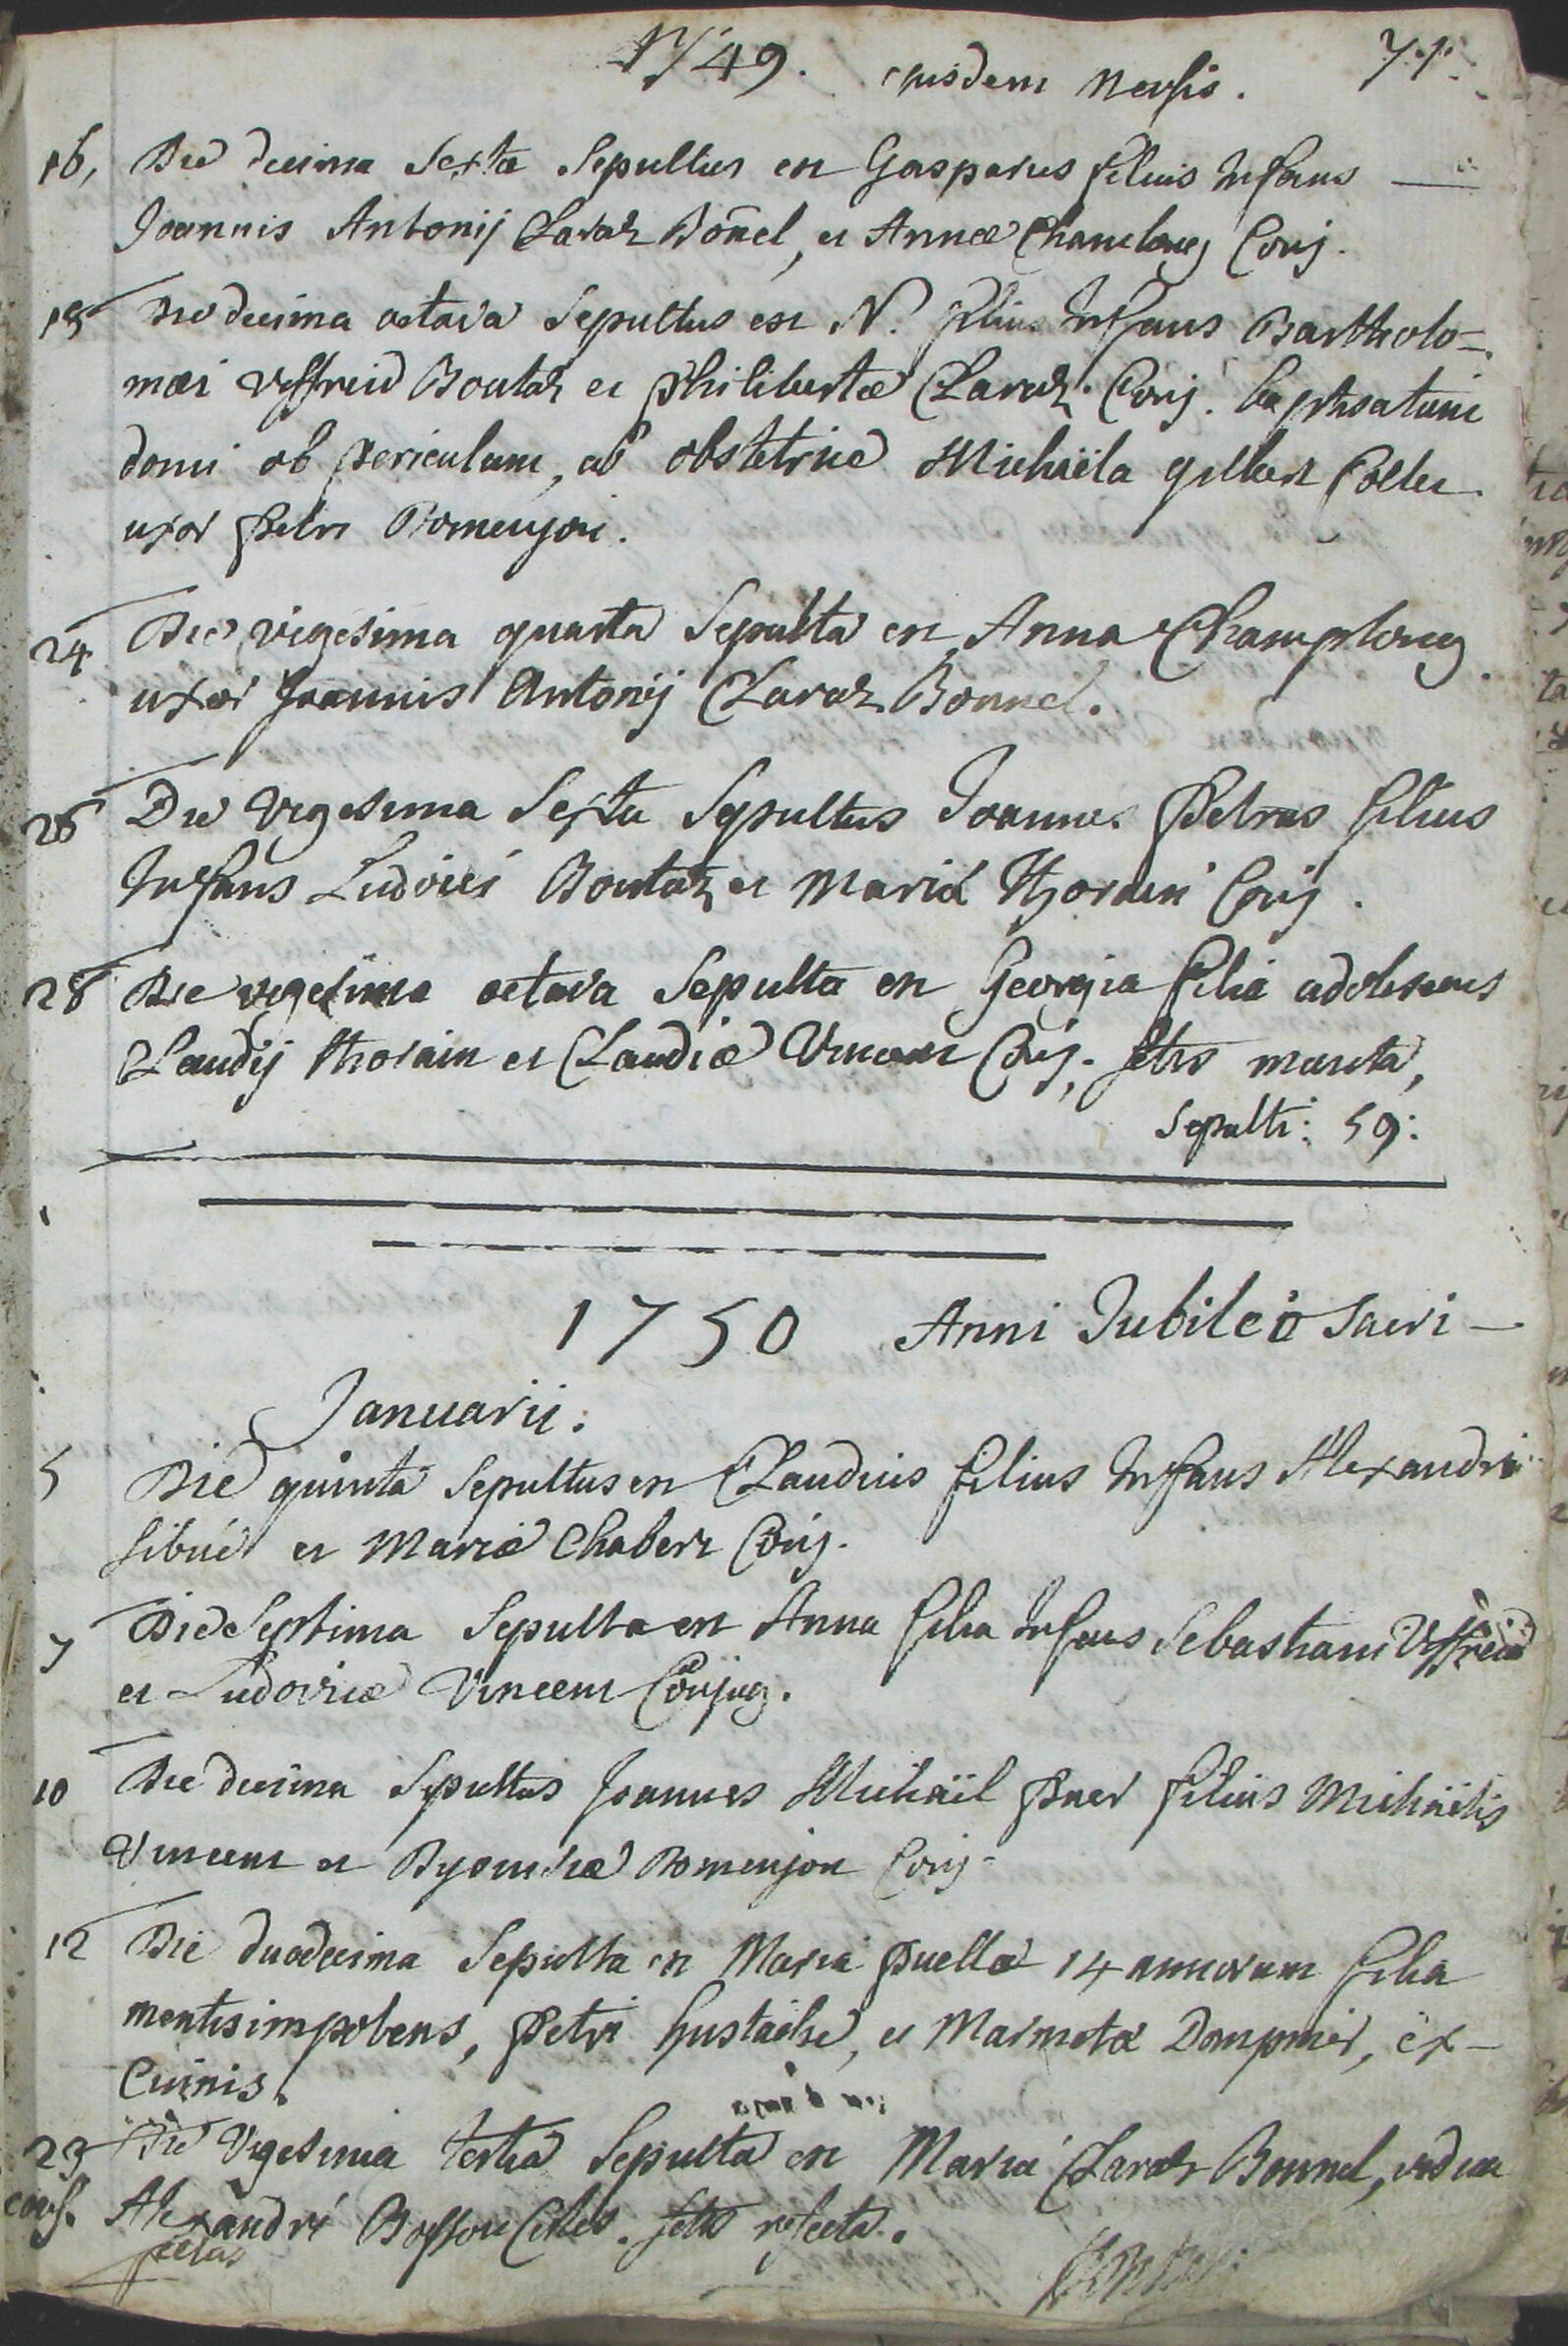 1749. ejusdem Mensis.
16, Die decima Sexta Sepultus est Gasparus filius Infans
Joannis Antonij Claraz Bonel, et Annæ Chamlong Conj.
18 Die decima octava Sepultus est N. filius Infans Bartholo=
mæi Uffreid Boutaz et Philibertæ Claraz Conj. baptisatum
domi ob periculum, ab obstetrice Michaëla gilbert Collet
uxor Petri Romenjon.
24 Die vigesima quarta Sepulta est Anna Champlong
uxor Joannis Antonij Claraz Bonnel.
26 Die Vigesima Sexta Sepultus Joannes Petrus filius
Infans Ludovici Boutaz et Mariæ Thorain Conj.
28 Die vigesima octava Sepulta est Georgia filia adolescens
Claudij thorain et Claudiæ Vincent Conj. Stis munita,
Sepulti: 59:
1750 Anni Jubilei Sacri
Januarii.
5 Die quinta Sepultus est Claudius filius Infans Alexandri
Sibué et Mariæ Chabert Conj.
7 Die Septima Sepulta est Anna filia Infans Sebastiani Uffreid
et Ludovicæ Vincent Conjug.
10 Die decima Sepultus Joannes Michaël Puer filius Michaëlis
Vincent et Romenjon Conj
12 Die duodecima Sepulta est Maria puella 14 annorum filia
mentis impotens, Petri Eustache, et Marmetæ Dompnier, ex
Cuinis.
23 Die Vigesima tertia Sepulta est Maria Claraz Bonnel, vidua
conf. Alexandri Bosson Collet. Stis refecta.